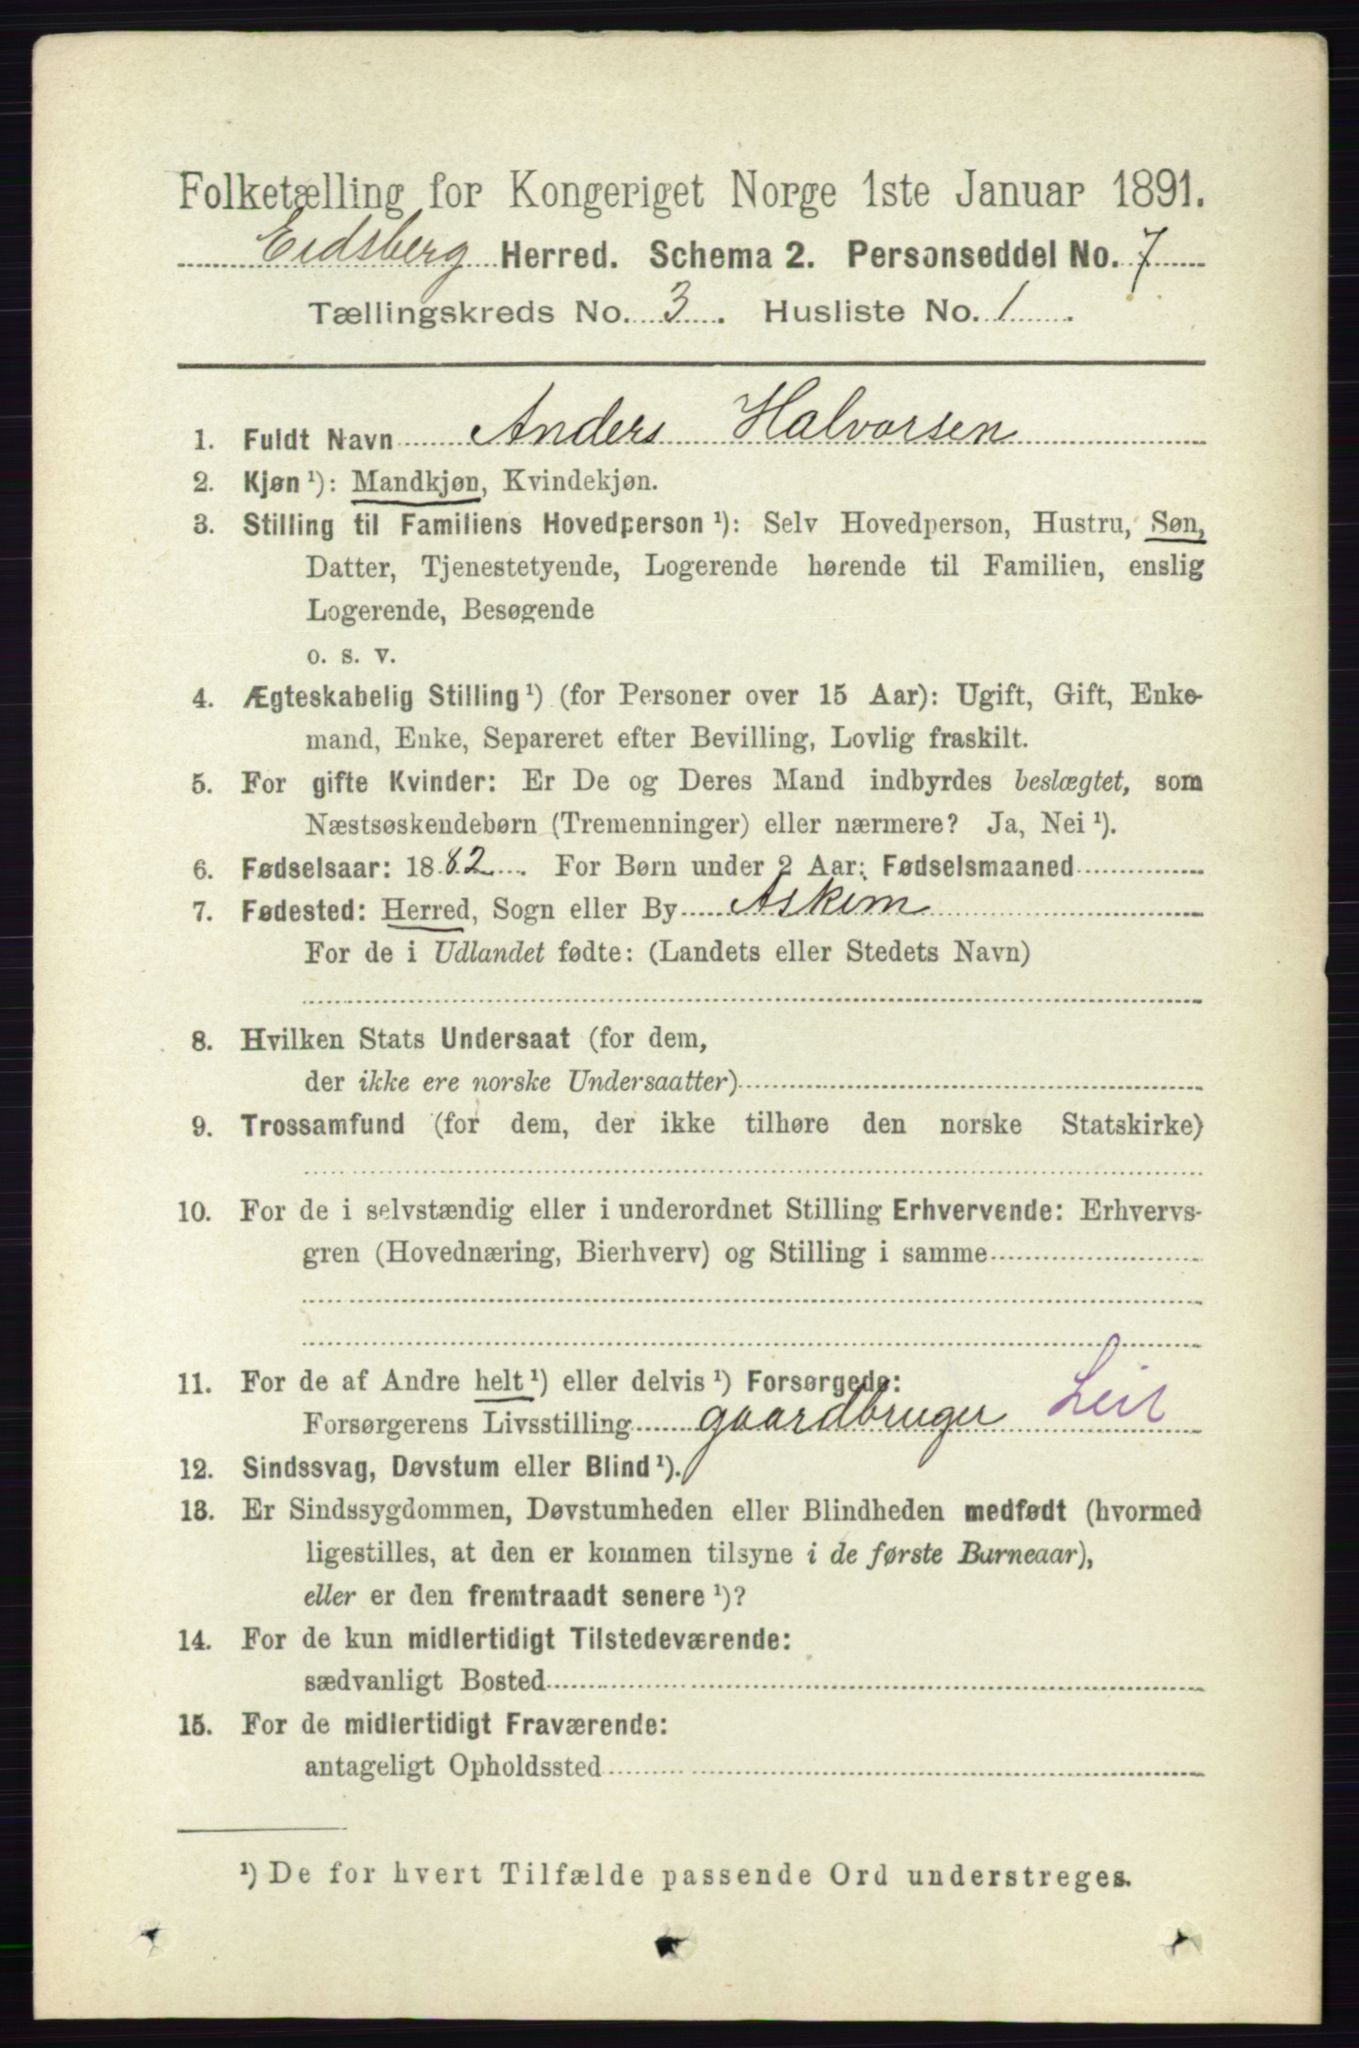 Folketælling for Kongeriget Norge 1ste Januar 1891.
Eidsberg Herred. Schema 2. Personseddel No. 7
Tællingskreds No. 3. Husliste No. 1.
1. Fuldt Navn Anders Halvorsen
2. Kjøn ¹): Mandkjøn, Kvindekjøn.
3. Stilling til Familiens Hovedperson ¹): Selv Hovedperson, Hustru, Søn,
Datter, Tjenestetyende, Logerende hørende til Familien, enslig
Logerende, Besøgende
o. s. v.
4. Ægteskabelig Stilling ¹) (for Personer over 15 Aar): Ugift, Gift, Enke-
mand, Enke, Separeret efter Bevilling, Lovlig fraskilt.
5. For gifte Kvinder: Er De og Deres Mand indbyrdes beslægtet, som
Næstsøskendebørn (Tremenninger) eller nærmere? Ja, Nei ¹).
6. Fødselsaar: 1882. For Børn under 2 Aar: Fødselsmaaned
7. Fødested: Herred, Sogn eller By Askim
For de i Udlandet fødte: (Landets eller Stedets Navn)
8. Hvilken Stats Undersaat (for dem,
der ikke ere norske Undersaatter)
9. Trossamfund (for dem, der ikke tilhøre den norske Statskirke)
10. For de i selvstændig eller i underordnet Stilling Erhvervende: Erhvervs-
gren (Hovednæring, Bierhverv) og Stilling i samme
11. For de af Andre helt ¹) eller delvis ¹) Forsørgede:
Forsørgerens Livsstilling gaardbruger
12. Sindssvag, Døvstum eller Blind ¹).
13. Er Sindssygdommen, Døvstumheden eller Blindheden medfødt (hvormed
ligestilles, at den er kommen tilsyne i de første Barneaar),
eller er den fremtraadt senere ¹)?
14. For de kun midlertidigt Tilstedeværende:
sædvanligt Bosted
15. For de midlertidigt Fraværende:
antageligt Opholdssted
¹) De for hvert Tilfælde passende Ord understreges.